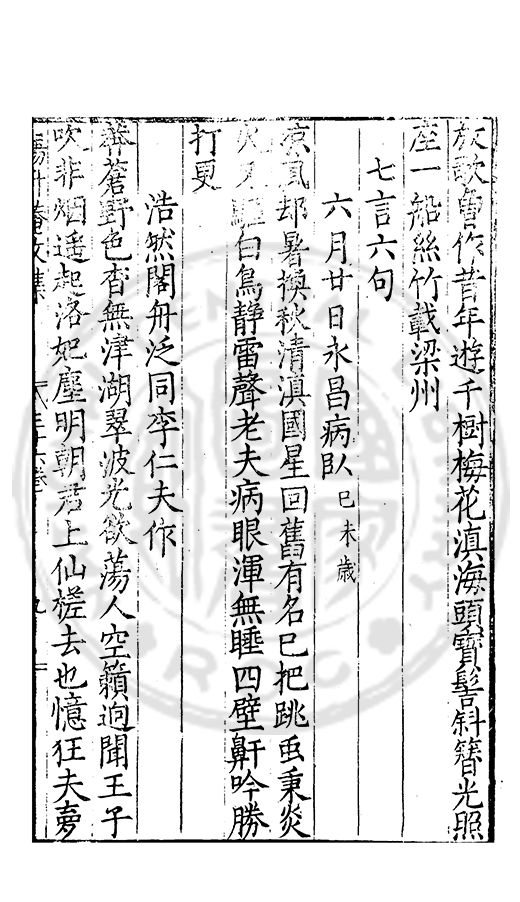 放歌曾作昔年遊千樹梅花滇海頭寶髻斜簪光照
座一船絲竹載梁州
七言六句
六月廿日永昌病臥 己未歳
凉風却暑換秋清滇國星回舊有名已把跳䖝秉炎
火 驅白鳥靜雷聲老夫病眼渾無睡四壁鼾吟勝
打更
浩然閣舟泛同李仁夫作
莽蒼野色杳無津湖翠波光欲蕩人空籟逈聞王子
吹非烟遥起洛妃塵明朝君上仙槎去也憶狂夫夢